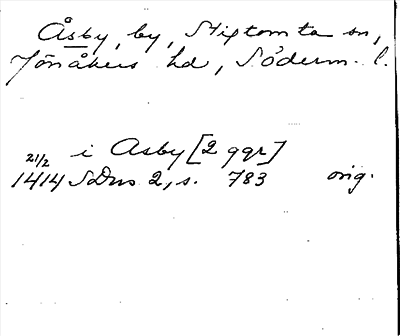 Åsby, by, Stigtomta sn,
Jönåkers hd, Söderm. l.
i Asby [2 ggr]
21/2
1414 SDns 2, s. 783 orig.